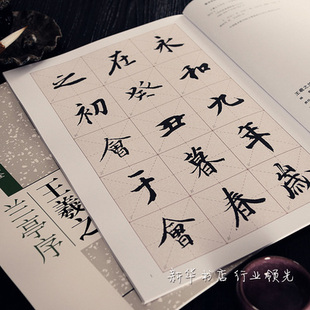 永和九年歲
在癸丑暮春
之初會于會
王羲之
兰亭序
新华书店 行业领先